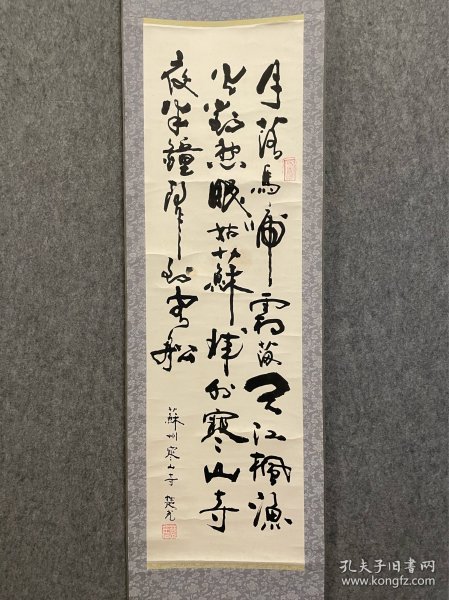 月落烏啼霜満天江楓漁
火對愁眠姑蘇城外寒山寺
夜半鐘聲到客船
蘇州寒山寺 楚光
孔夫子旧书网
www.kongfz.com